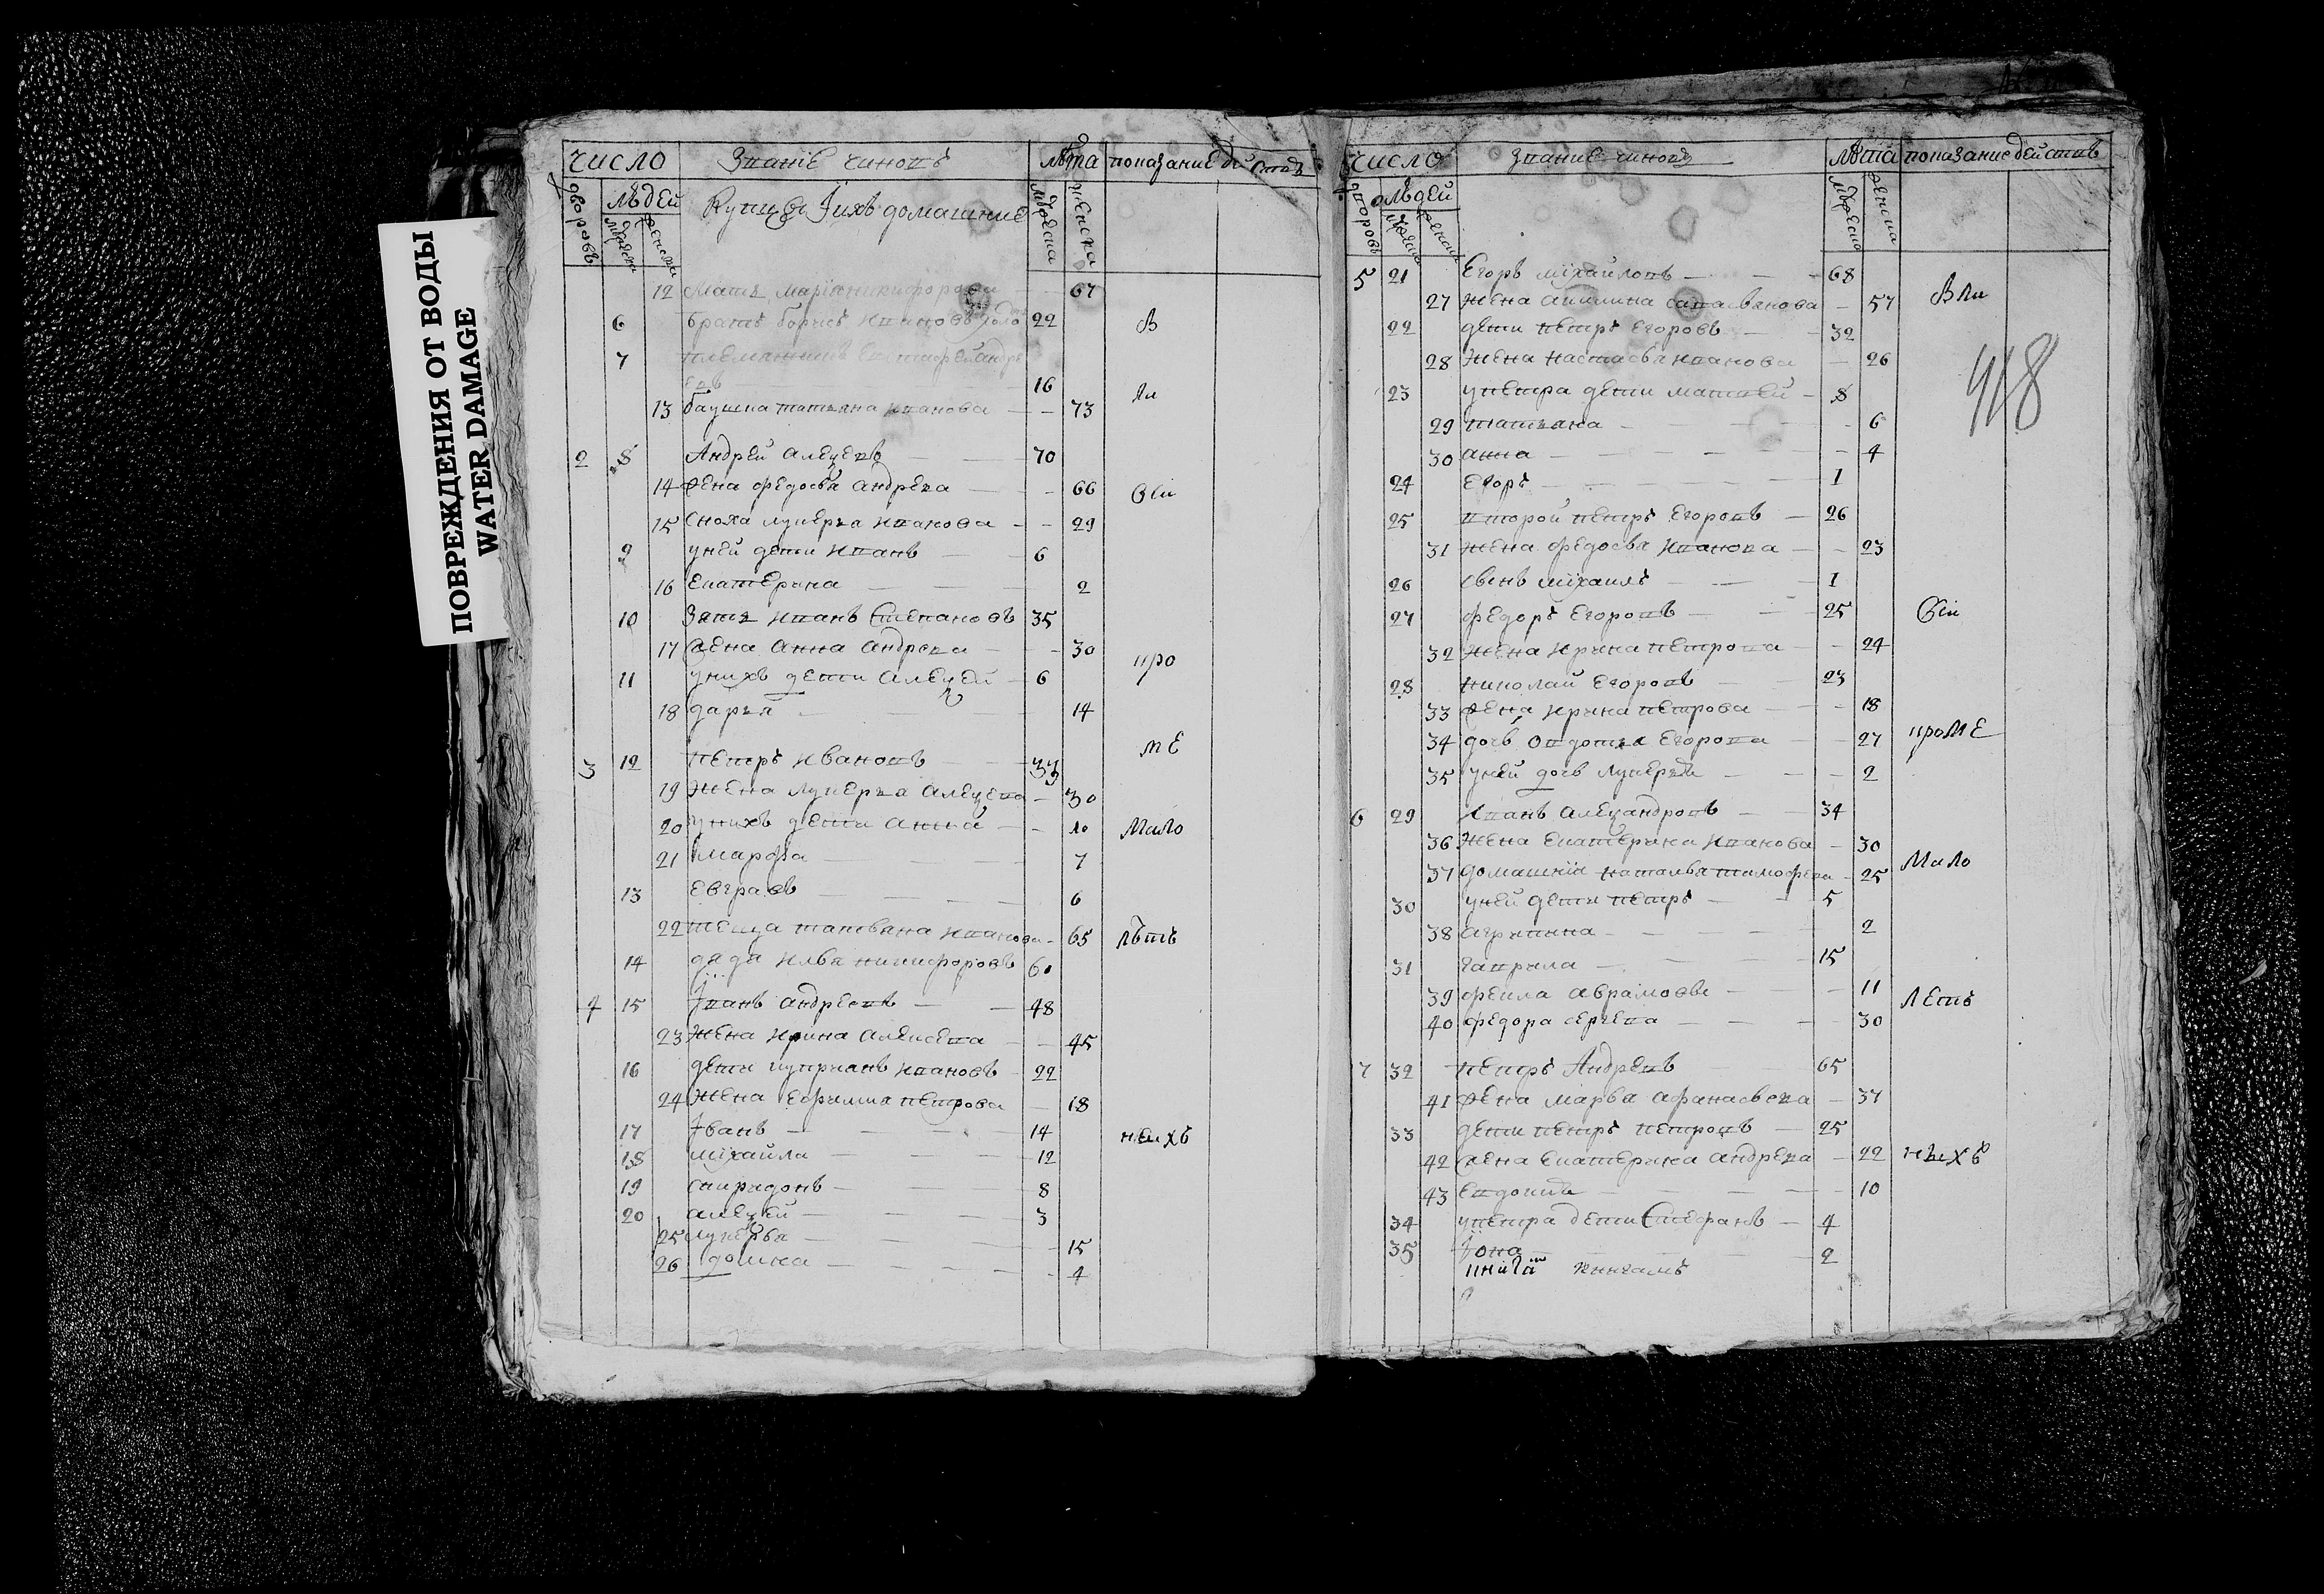 ПОВРЕЖДЕНИЯ ОТ ВОДЫ
WATER DAMAGE
число Званіе чиновъ лѣта показание действъ
дворовъ людей Купцы Iихъ домашние мужеска женска
мужеска женска
12 Мать 67
6 братъ борисъ ивановъ 22 В
7 племянникъ
16 ли
13 баушка татьяна иванова 73
2 8 Андрей алеѯевъ 70
14 жена федосья андрева 66 Они
15 сноха лукерья иванова 29
9 уней дети иванъ 6
16 екатерина 2
10 Зять иванъ степановъ 35
17 жена анна андрева 30 про
11 унихъ дети алеѯей 6
18 дарья 14
3 12 петръ ивановъ 39 тЕ
19 жена лукерья алеѯева 30
20 унихъ дети анна 10 Мало
21 марфа 7
13 евграѳъ 6
22 теща татьяна иванова 65 лѣтъ
14 дядя илья никифоровъ 60
4 15 Iванъ андреевъ 48
23 жена ирина алексева 45
16 дети куприанъ ивановъ 22
24 жена ефимия петрова 18
17 Iванъ 14 ныхъ
18 михайла 12
19 спиридонъ 8
20 алеѯей 3
25 лукерья 15
26 домна 4
число звание чиновъ лѣта показание действъ
дворовъ людей мужеска женска
мужеска женска
5 21 Егоръ михайловъ 68
27 жена акилина савастьянова 57 Вли
22 дети петръ егоровъ 32
28 жена настасья иванова 26
418
23 упетра дети матвей 8
29 татьяна 6
30 анна 4
24 егоръ 1
25 второй петръ егоровъ 26
31 жена федосья иванова 23
26 сынъ михаилъ 1
27 федоръ егоровъ 25 Они
32 жена ирина петрова 24
28 николай егоровъ 23
33 жена ирина петрова 18
34 дочь овдотья егорова 27 проТЕ
35 уней дочь лукерья 2
6 29 Iванъ алеѯандровъ 34
36 жена екатерина иванова 30
37 домашнія наталья тимофева 25 Мало
30 уней дети петръ 5
38 агрипина 2
31 гаврила 15
39 фекла аврамова 11 лЕтъ
40 федора сергева 30
7 32 петръ Андревъ 65
41 жена марья афанасьева 37
33 дети петръ петровъ 25
42 жена екатерина андрева 22 ныхъ
43 евдокия 10
34 упетра дети стефанъ 4
35 Iона 2